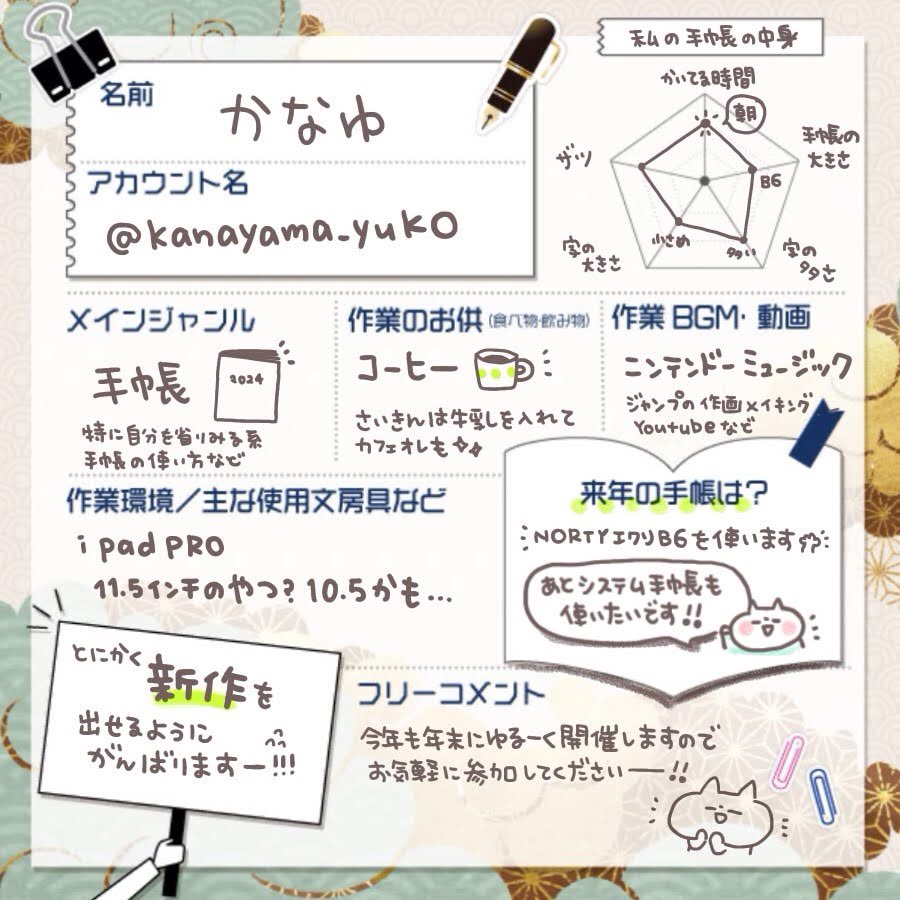 名前
かなゆ
アカウント名
@kanayama_yuko
私の手帳の中身
かいてる時間
朝
手帳の
大きさ
B6
字の
多さ
多い
字の
大きさ
小さめ
ザツ
メインジャンル
手帳
2024
特に自分を省りみる系
手帳の使い方など
作業のお供(食べ物・飲み物)
コーヒー
さいきんは牛乳を入れて
カフェオレも
作業BGM・動画
ニンテンドーミュージック
ジャンプの作画メイキング
Youtubeなど
作業環境/主な使用文房具など
ipad PRO
11.5インチのやつ?10.5かも...
来年の手帳は?
NORTYエクリB6を使います
あとシステム手帳も
使いたいです!!
とにかく
新作を
出せるように
がんばりますー!!!
フリーコメント
今年も年末にゆるーく開催しますので
お気軽に参加してくださいー!!